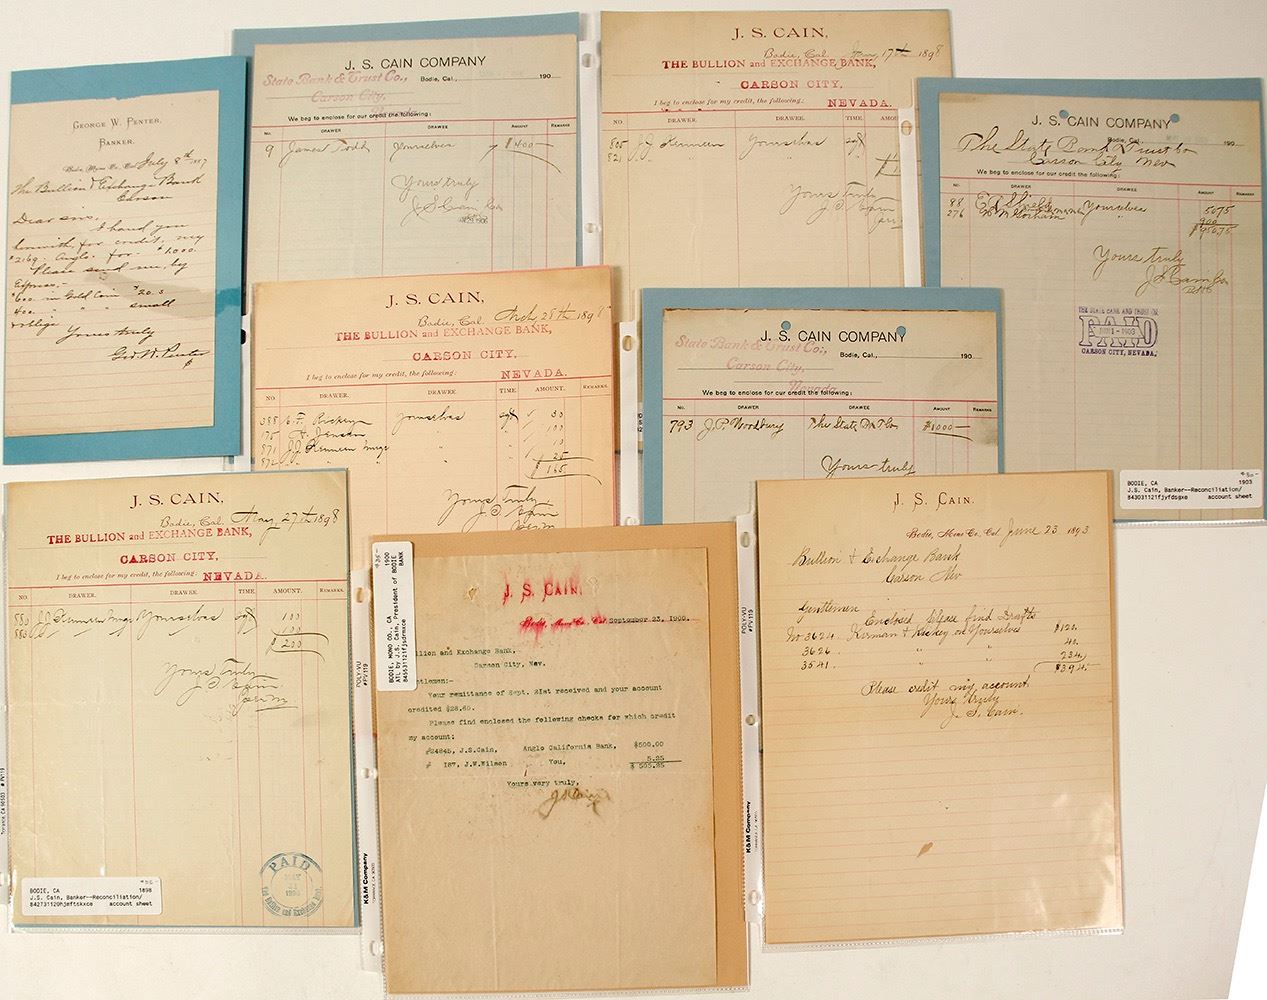 GEORGE W. PENTER.
BANKER.
Bodie, Mono Co., Cal July 8th 1887
The Bullion & Exchange Bank
Carson
Dear sirs,
I hand you
herewith for credit, my
#2169. Anglo. for. $1,000.
Please send me, by
Express,-
$600 in Gold Coin $20.s
400. " " " small
& oblige
Yours truly
Geo. W. Penter
J. S. CAIN COMPANY
State Bank & Trust Co.,
Bodie, Cal., 190
Carson City,
Nevada
We beg to enclose for our credit the following:
No. DRAWER DRAWEE AMOUNT REMARKS
9 James Todd Yourselves $400
Yours truly
J. S. Cain
J. S. CAIN,
Bodie, Cal. 17th 1898
THE BULLION and EXCHANGE BANK,
CARSON CITY,
I beg to enclose for my credit, the following: NEVADA.
NO. DRAWER. DRAWEE. TIME. AMOUNT. REMARKS.
805 J. J. Kerineen Yourselves sgt
821 " " "
Yours Truly
J. S. Cain
J. S. CAIN COMPANY
Bodie, Cal., 190
The State Bank & Trust Co
Carson City Nev
We beg to enclose for our credit the following:
No. DRAWER DRAWEE AMOUNT REMARKS
88 Yourselves 5075
276 W. M. Gorham " 900
$95075
Yours truly
J S Cain Co
THE STATE BANK AND TRUST CO.
PAID
1903
CARSON CITY, NEVADA.
$30-
BODIE, CA 1903
J.S. Cain, Banker--Reconciliation/
843031121fjyfdsgxe account sheet
J. S. CAIN,
Bodie, Cal. Mch 28th 1898
THE BULLION and EXCHANGE BANK,
CARSON CITY,
I beg to enclose for my credit, the following: NEVADA.
NO. DRAWER. DRAWEE. TIME. AMOUNT. REMARKS.
388 Rickey Yourselves sgt 30
175 Jensen " " 100
871 J. J. Kerineen Mngr " " 10
872 " " " " 25
$165
Yours Truly
J. S. Cain
J. S. CAIN COMPANY
State Bank & Trust Co.,
Bodie, Cal., 190
Carson City,
Nevada
We beg to enclose for our credit the following:
No. DRAWER DRAWEE AMOUNT REMARKS
793 J. P. Woodbury The State B & T Co $1000
Yours truly
J. S. CAIN,
Bodie, Cal. May 27th 1898
THE BULLION and EXCHANGE BANK,
CARSON CITY,
I beg to enclose for my credit, the following: NEVADA.
NO. DRAWER. DRAWEE. TIME AMOUNT. REMARKS.
880 J. J. Kerineen Mngr Yourselves sgt 100
" " " " 100
$200
Yours Truly
J. S. Cain
PAID
MAY
31
1898
The Bullion and Exchange Bank
BODIE, CA 1898
J.S. Cain, Banker--Reconciliation/
842731120hjmftskxce account sheet
$35- 1900
BODIE, MONO CO., CA
ATL by J.S. Cain, President of BODIE
845531121fjsdrmxce BANK
J. S. CAIN.
Bodie, Mono Co., Cal. September 23, 1900.
Bullion and Exchange Bank,
Carson City, Nev.
Gentlemen:-
Your remittance of Sept. 21st received and your account
credited $28.60.
Please find enclosed the following checks for which credit
my account:
#24845, J.S.Cain, Anglo California Bank, $500.00
# 187, J.W.Wilson You, 5.25
$ 505.25
Yours very truly,
J S Cain
J. S. CAIN.
Bodie, Mono Co., Cal. June 23 1893
Bullion & Exchange Bank
Carson Nev
Gentlemen
Enclosed please find Drafts
No 3624. Kirman & Rickey on Yourselves $120.
3626 " " 40.
3541. " " 234.
$394.
Please credit my account
Yours truly
J. S. Cain.
POLY-VU
#PV119
K&M Company
TORRANCE, CA 90503
POLY-VU
#PV119
K&M Company
Torrance, CA 90503 # PV119